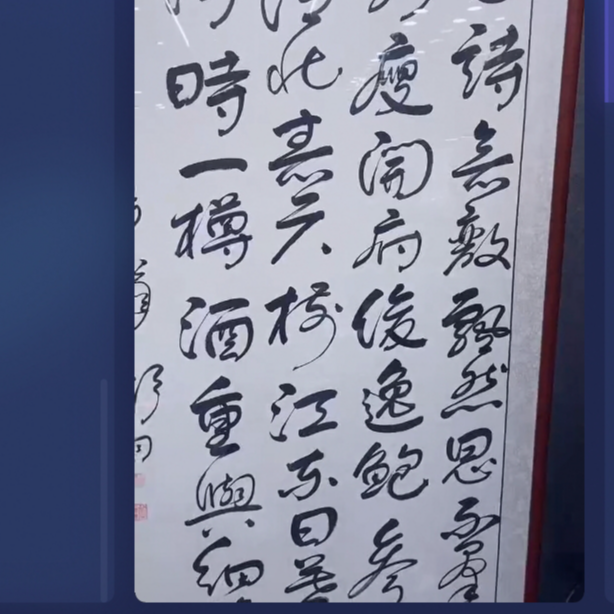 詩無敵飄然思不羣
庾開府俊逸鮑參
北春天樹江東日暮
時一樽酒重與細